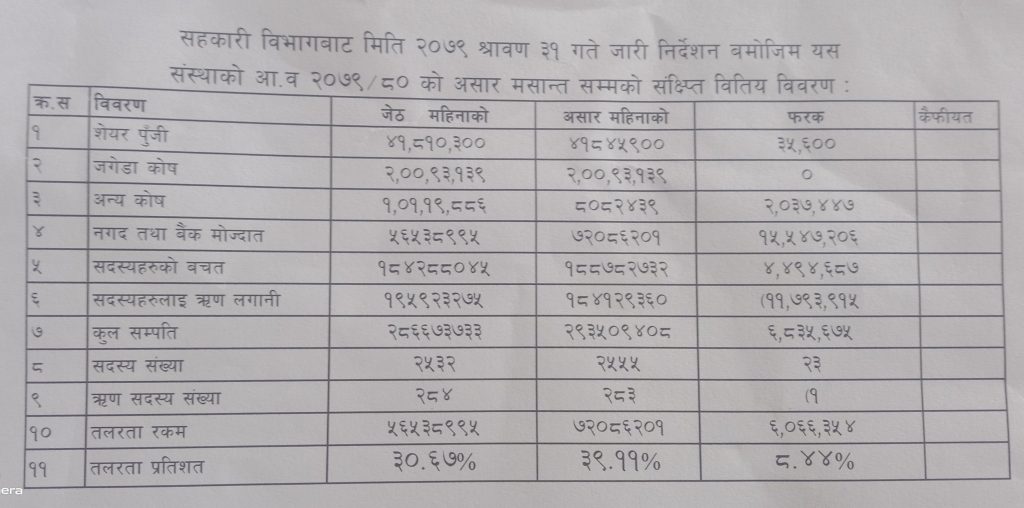 सहकारी विभागवाट मिति २०७९ श्रावण ३१ गते जारी निर्देशन वमोजिम यस
संस्थाको आ.व २०७९/८० को असार मसान्त सम्मको संक्षिप्त वितिय विवरण :
क्र.स विवरण जेठ महिनाको असार महिनाको फरक कैफीयत
१ शेयर पुँजी ४१,८१०,३०० ४१८४५९०० ३५,६००
२ जगेडा कोष २,००,९३,१३९ २,००,९३,१३९ ०
३ अन्य कोष १,०१,१९,८८६ ८०८२४३९ २,०३७,४४७
४ नगद तथा बैंक मोज्दात ५६५३८९९५ ७२०८६२०१ १५,५४७,२०६
५ सदस्यहरुको बचत १८४२८८०४५ १८८७८२७३२ ४,४९४,६८७
६ सदस्यहरुलाइ ऋण लगानी १९५९२३२७५ १८४१२९३६० (११,७९३,९१५
७ कुल सम्पति २८६६७३७३३ २९३५०९४०८ ६,८३५,६७५
८ सदस्य संख्या २५३२ २५५५ २३
९ ऋण सदस्य संख्या २८४ २८३ (१
१० तलरता रकम ५६५३८९९५ ७२०८६२०१ ६,०६६,३५४
११ तलरता प्रतिशत ३०.६७% ३९.११% ८.४४%
era